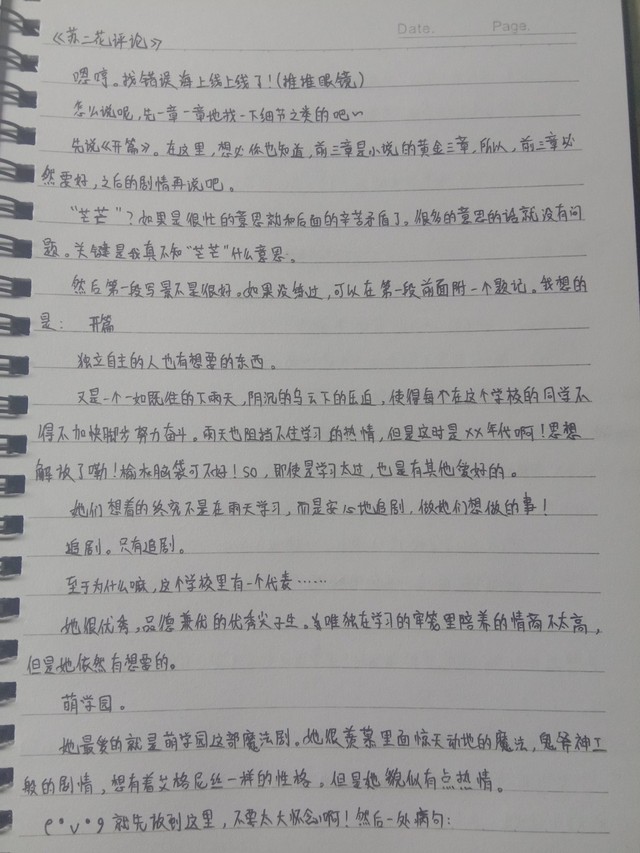 Date. Page.
《苏二花评论》
嗯哼。找错误海上线上线了！(推推眼镜)
怎么说呢，先一章一章地找一下细节之类的吧～
先说《开篇》。在这里，想必你也知道，前三章是小说的黄金三章，所以，前三章必
然要好，之后的剧情再说吧。
“芒芒”？如果是很忙的意思就和后面的辛苦矛盾了。很多的意思的话就没有问
题。关键是我真不知“芒芒”什么意思。
然后第一段写景不是很好。如果没练过，可以在第一段前面附一个题记。我想的
是： 开篇
独立自主的人也有想要的东西。
又是一个一如既往的下雨天，阴沉的乌云下的压迫，使得每个在这个学校的同学不
得不加快脚步努力奋斗。雨天也阻挡不住学习的热情，但是这时是××年代啊！思想
解放了嘞！榆木脑袋可不好！so，即使是学习太过，也是有其他爱好的。
她们想着的终究不是在雨天学习，而是安心地追剧，做她们想做的事！
追剧。只有追剧。
至于为什么嘛，这个学校里有一个代表……
她很优秀，品德兼优的优秀尖子生。唯独在学习的牢笼里陪养的情商不太高，
但是她依然有想要的。
萌学园。
她最爱的就是萌学园这部魔法剧。她很羡慕里面惊天动地的魔法，鬼斧神工
般的剧情，想有着艾格尼丝一样的性格，但是她貌似有点热情。
就先放到这里，不要太大怀念啊！然后一处病句：